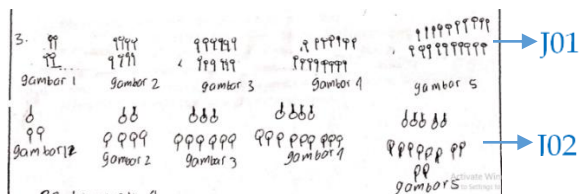 3.
gambar 1 gambar 2 gambar 3 gambar 4 gambar 5
J01
gambar 12 gambar 2 gambar 3 gambar 4 gambar 5
J02
Activate Win
to Settings t